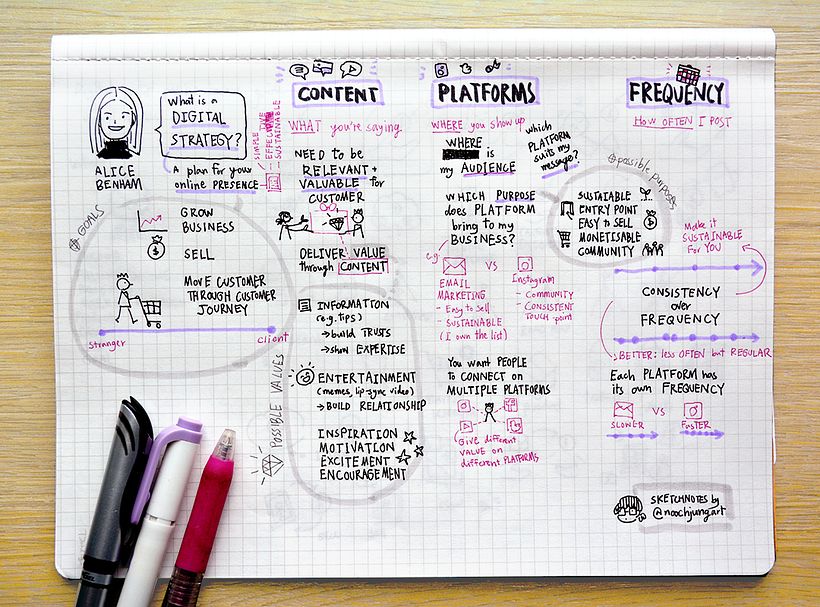 ALICE
BENHAM
What is a
DIGITAL
STRATEGY?
A plan for your
online PRESENCE
SIMPLE
EFFECTIVE
SUSTAINABLE
GOALS
GROW
BUSINESS
SELL
MOVE CUSTOMER
THROUGH CUSTOMER
JOURNEY
Stranger
Client
CONTENT
WHAT you're saying
NEED to be
RELEVANT +
VALUABLE for
CUSTOMER
DELIVER VALUE
through CONTENT
POSSIBLE VALUES
INFORMATION
(e.g. tips)
→ build TRUSTS
→ show EXPERTISE
ENTERTAINMENT
(memes, lip-sync video)
→ BUILD RELATIONSHIP
INSPIRATION
MOTIVATION
EXCITEMENT
ENCOURAGEMENT
PLATFORMS
WHERE you show up
WHERE
is
my AUDIENCE
which
PLATFORM
suits my
message?
WHICH PURPOSE
does PLATFORM
bring to my
BUSINESS?
possible purposes
SUSTAIABLE
ENTRY POINT
EASY to SELL
MONETISABLE
COMMUNITY
e.g.
EMAIL
MARKETING
- Easy to sell
- SUSTAINABLE
(I own the list)
VS
Instagram
- COMMUNITY
- CONSISTENT
TOUCH point
You want PEOPLE
to CONNECT on
MULTIPLE PLATFORMS
Give different
VALUE on
different PLATFORMS
FREQUENCY
How OFTEN I POST
Make it
SUSTAINABLE
for YOU
CONSISTENCY
over
FREQUENCY
BETTER: less OFTEN but REGULAR
Each PLATFORM has
its own FREQUENCY
VS
SLOWER
FASTER
SKETCHNOTES by
@noochjung.art